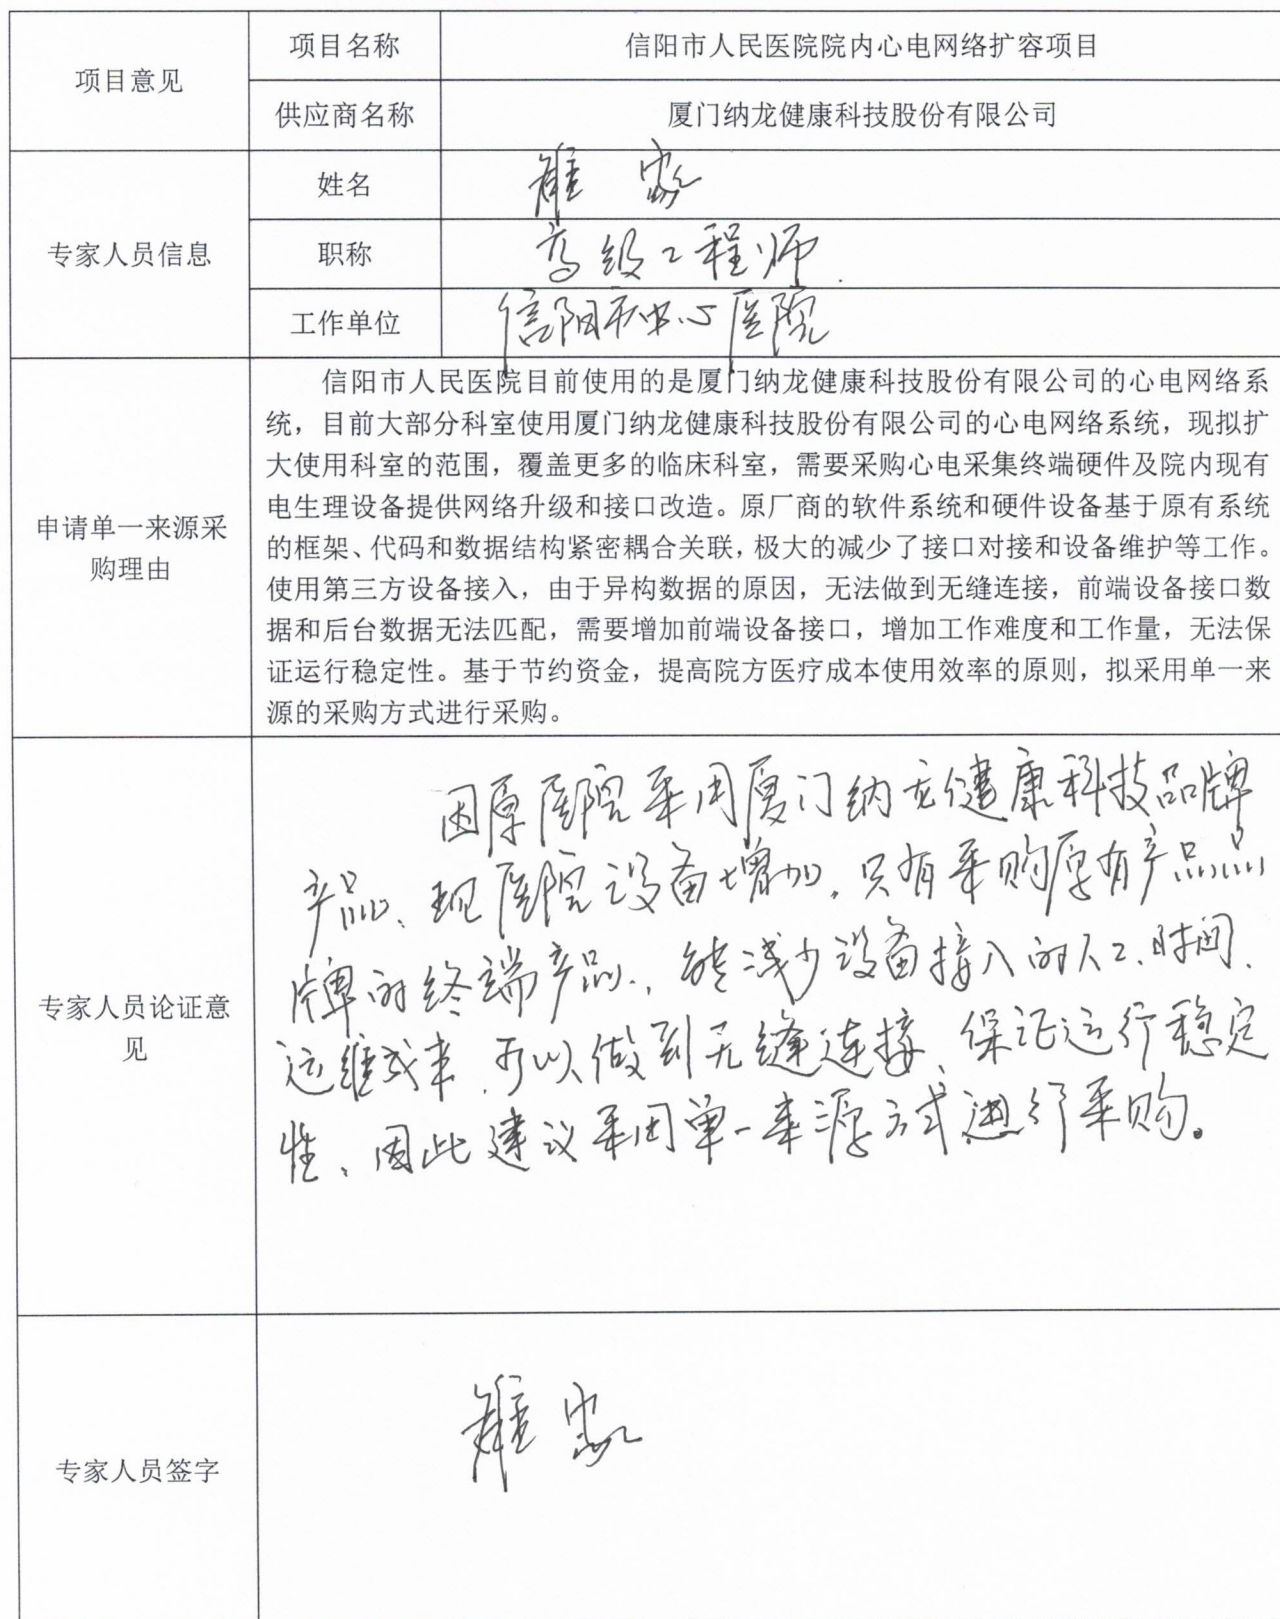 项目意见
项目名称
信阳市人民医院院内心电网络扩容项目
供应商名称
厦门纳龙健康科技股份有限公司
专家人员信息
姓名
职称
高级工程师
工作单位
信阳市中心医院
申请单一来源采
购理由
信阳市人民医院目前使用的是厦门纳龙健康科技股份有限公司的心电网络系
统，目前大部分科室使用厦门纳龙健康科技股份有限公司的心电网络系统，现拟扩
大使用科室的范围，覆盖更多的临床科室，需要采购心电采集终端硬件及院内现有
电生理设备提供网络升级和接口改造。原厂商的软件系统和硬件设备基于原有系统
的框架、代码和数据结构紧密耦合关联，极大的减少了接口对接和设备维护等工作。
使用第三方设备接入，由于异构数据的原因，无法做到无缝连接，前端设备接口数
据和后台数据无法匹配，需要增加前端设备接口，增加工作难度和工作量，无法保
证运行稳定性。基于节约资金，提高院方医疗成本使用效率的原则，拟采用单一来
源的采购方式进行采购。
专家人员论证意
见
因原医院采用厦门纳龙健康科技品牌
产品、现医院设备增加，只有采购原有产品品
牌的终端产品，能减少设备接入的人工、时间、
运维成本，可以做到无缝连接、保证运行稳定
性、因此建议采用单一来源方式进行采购。
专家人员签字